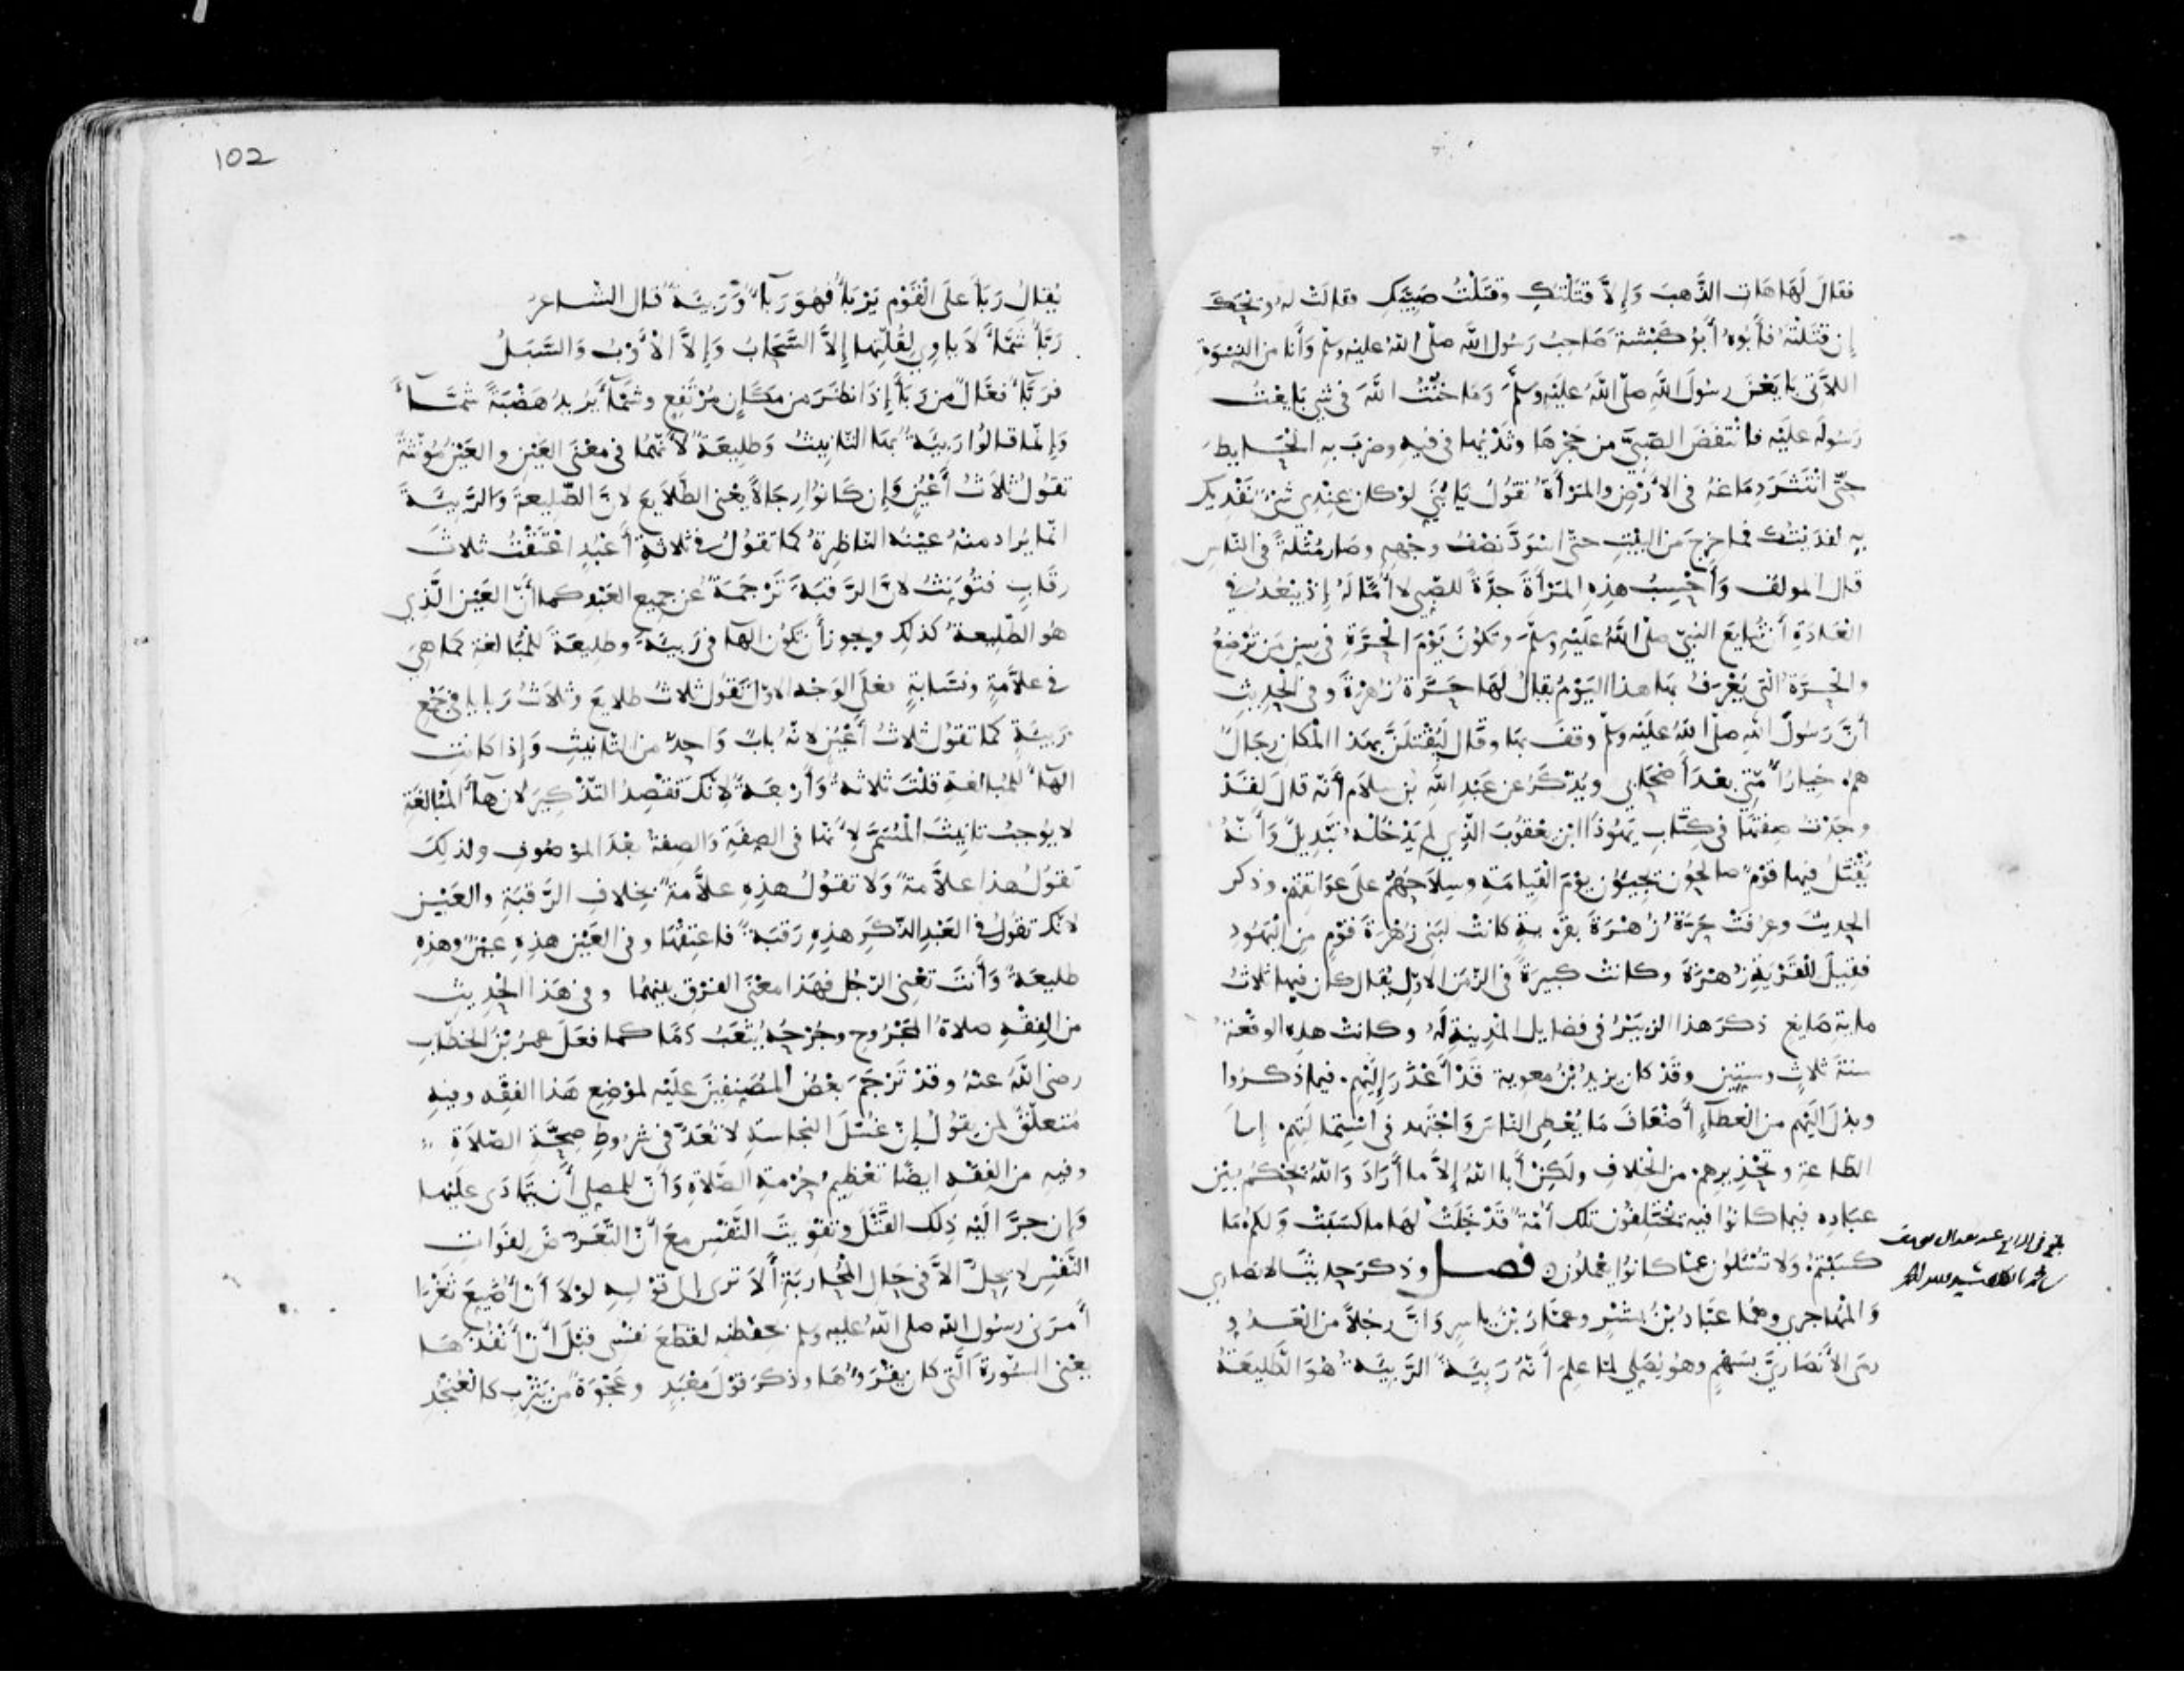 فقالَ لَهَا هَاتِ الذَّهبَ وَإِلاَّ قتَلْتكِ وَقتَلْتُ صَبِيَّكِ فقالتْ لهُ وَيْحَكَ
إِن قتَلْتَهُ فأَبُوهُ أَبُو كَبْشَةَ صَاحِبُ رَسُولِ اللَّهِ صلّى اللهُ عليْهِ وسلّم وَأَنا من النِّسْوَةِ
اللاَّتِى بَايَعْنَ رسُولَ اللهِ صلّى اللَّهُ عَليَهِ وسلّمَ وَمَا خُنْتُ اللَّهَ فى شىٍ بَايعْتُ
رَسُولَه عليْه فانْتَفَضَ الصّبىَّ من حَجْرِهَا وثَدْيُهَا فى فيهِ وضربَ بهِ الْحَايِطَ
حتّى انْتشَرَ دِمَاغهُ فى الأَرْضِ والمَرْأَةُ تقُولُ يَا بُنَىَّ لوْ كان عِنْدِى شىْءٌ نَفْدِيكَ
بهِ لفدَيْتُكَ فما خرجَ منَ البَيْتِ حتّى اسْوَدَّ نصْفُ وجْههِ وصَارَ مُثْلَةً فى النّاسِ
قال المولف وَأَحْسِبُ هذِهِ المَرْأَةَ جدَّةً للصّبى لا أُمًّا لَهُ إِذْ يَبْعُدُ فى
العَادَةِ أَن تُبَايعَ النبىّ صلّى اللَّهُ عَليْهِ وسلّمَ وَتَكُونَ يَوْمَ الْحَرَّةِ فى سِنِ مَن تُرْضِعُ
والْحَرَّةُ الّتى يُعْرَفُ بهَا هذا اليَوْمُ يُقالُ لهَا حَرَّةُ زُهْرَةَ وفى الْحَدِيثِ
أَنَّ رَسُولَ اللهِ صلّى اللهُ عليْهِ وسلّم وقفَ بها وقالَ ليُقْتلَنَّ بهذا الْمكانِ رجَالٌ
هم خِيَارُ أُمّتى بعْدَ أَصْحَابى ويُذكَرُ عن عَبْدِ اللهِ بْن سلاَم أَنّه قالَ لقدْ
وجَدْتُ صِفتهَا فى كتَابِ يَهُوذَا ابن يعْقوبَ الذِّى لم يَدْخُلْهُ تَبْدِيلٌ وَأَنّهُ
يُقْتَلُ فيها قوْمٌ صالحُون يجِيئونَ يوْمَ القِيامَةِ وسِلاَحهُمْ علَى عوَاتِقِهم وذكر
الحديثَ وعرِفَتْ حَرّةُ زُهْرَةَ بقَرْيةٍ كانتْ لبَنى زُهْرَةَ قوْمٍ مِن اليَهُودِ
فقِيلَ للْقرْيَةِ زُهْرَةَ وكانتْ كبيرَةً فى الزّمَن الاوّلِ يُقال كان فيها ثلاثُ
مايةِ صَايغٍ ذكَرَ هذا الزبيْرُ فى فضايل المَدِينةِ لَهُ وكانتْ هذِه الوقْعةُ
سنةَ ثلاثٍ وستِّين وقدْ كان يزيدُ بْنُ معويةَ قَدْ أَعْذَرَ إِليْهِم فيما ذكرُوا
وبذلَ اليْهم من العطاءِ أَضْعَافَ مَا يُعْطِى النّاسَ وَاجْتَهد فى اسْتِمالتِهم إلى
الطّاعةِ وتحْذِيرِهم من الْخلافِ ولكِنْ أَبا اللهُ إِلاَّ ما أَرَادَ وَاللهُ يحْكُمُ بيْنَ
عبَادِه فيما كانُوا فيهِ يخْتَلِفُون تلكَ أُمّةٌ قَدْ خَلَتْ لهَا ما كسَبَتْ وَلكم مَا
كسَبْتمْ وَلا تُسْئلونَ عمّا كانُوا يعْملُون فصل وذكرَ حدِيثَ الانصَارى
وَالْمُهاجرى وهُمَا عَبّادُ بْنُ بِشْرٍ وعمّارُ بْنُ ياسِرٍ وَأَنَّ رجُلاً من العَدُوِ
رمَى الأَنْصَارىَّ بسَهْمٍ وهُوَ يُصَلى لمّا علِمَ أَنّهُ رَبِيئَةٌ الرَّبِيئَةُ هُوَ الطّلِيعَةُ
بلغ
102
يُقالُ رَبَأَ علَى الْقوْمِ يَرْبَأُ فهُوَ رَبَّآءٌ وَرَبِيئَةٌ قال الشّاعرُ
رَبَّآءُ شَمَّآءَ لاَ ياوِى لقُلّتِها إِلاَّ السَّحَابُ وَإِلاَّ الأَوْبُ وَالسَّبَلُ
فرَبّآءُ فعّالٌ من رَبَأَ إِذَا نظرَ من مكَانٍ مُرْتَفِعٍ وشمّآءُ يُرِيدُ هَضْبَةً شمَّآءَ
وَإِنّما قالُوا رَبِيئَةٌ بهَاءِ التّانيثِ وَطلِيعَةٌ لأَنّهُمَا فى معْنَى العَيْنِ والعَيْنُ مُؤَنّثةٌ
تقُولُ ثلاَثُ أَعْيُنٍ وَإِن كَانُوا رِجَالاً يعْنى الطّلايِعَ لانَّ الطّلِيعةَ وَالرّبِيئَةَ
انّما يُراد منْهُ عيْنُهُ النّاظِرةُ كما تقُولُ فى ثلاثةِ أَعْبُدٍ اعْتَقْتُ ثلاثَ
رقَابٍ فتُؤَنِثُ لانَّ الرَّقبَةَ تَرْجَمَةٌ عن جميع العَبْدِ كما أَنّ العَيْنَ الّذِى
هُوَ الطّلِيعةُ كذلِك ويجوزُ أَن تكُونَ الهَآءُ فى رَبِيئَةٍ وطلِيعَةٍ للْمُبَالغةِ كما هىَ
فى علاَّمَةٍ ونسَّابَةٍ فعلَى الوَجْهِ الاوّل تقُول ثلاثُ طلايعَ وثلاَثُ رَبايا فى جَمْعِ
رَبِيئَةٍ كما تقُول ثلاثُ أَعْيُنٍ لانّهُ بابٌ وَاحِدٌ من التّانيثِ وَإِذا كانتِ
الهَآءُ للْمُبالغةِ قلْتَ ثلاثةٌ وَأَرْبعَةٌ لانّكَ تقْصِدُ التّذْكِيرَ لانَّ هآءَ الْمُبَالغَةِ
لا يُوجبُ تانيثَ الْمُسَمَّى لأَنّها فى الصِفَةِ وَالصِفةُ بعْدَ المؤصُوفِ ولذلِكَ
تقولُ هذا علاَّمةٌ وَلا تقُولُ هذِهِ علاَّمةٌ بِخلافِ الرّقبَةِ والعَيْنِ
لانّكَ تقُولُ فى العَبْدِ الذّكَرِ هذِهِ رَقبَةٌ فاعتِقْهَا وفى العَيْنِ هذِهِ عيْنٌ وهذِهِ
طليعَةٌ وَأَنتَ تعْنِى الرّجُل فهذا معْنَى الفرْقِ بينهُمَا وفى هَذا الْحَدِيثِ
من الفِقْهِ صلاةُ المَجْرُوحِ وجُرْحُهُ يُثْعَبُ دَمًا كما فعَلَ عمرُ بْنُ الخطّابِ
رضى اللّهُ عنْهُ وقدْ تَرْجَمَ بعْضُ المُصَنِفِينَ علَيْه لموْضِعِ هَذا الفِقْه وفيهِ
مُتعلّقٌ لمن يقُولُ إِنّ غسْلَ النجاسةِ لا تُعَدُّ فى شرُوطِ صِحَّةِ الصّلاَةِ
وفيهِ من الفِقْهِ ايضًا تعْظِيمُ حُرْمةِ الصّلاَةِ وَأَنّ للْمصلى أَن يتَمادَى عليْها
وَإِن جرَّ اليْهِ ذلِكَ القَتْلَ وتفْوِيتَ النّفْسِ معَ أَنّ التّعَرُّضَ لِفوَاتِ
النّفْسِ لا يحِلُّ إِلاَّ فى حَالِ الْمُحَاربَةِ أَلاَ ترى إِلى قوْلِهِ لوْلاَ أَنْ أُضِيعَ ثغْرًا
أَمرَنى رسُول اللهِ صلى اللهُ عليه وسلم بحِفْظِه لقطعَ نفْسى قبْلَ أَنْ أُنْفِدَهَا
يعْنى السُّورَةَ الّتى كان يقْرَؤُهَا وذكرَ قوْلَ معْبَدٍ وعَجْوَةٌ من يَثْرِبَ كالْعُنْجُدِ